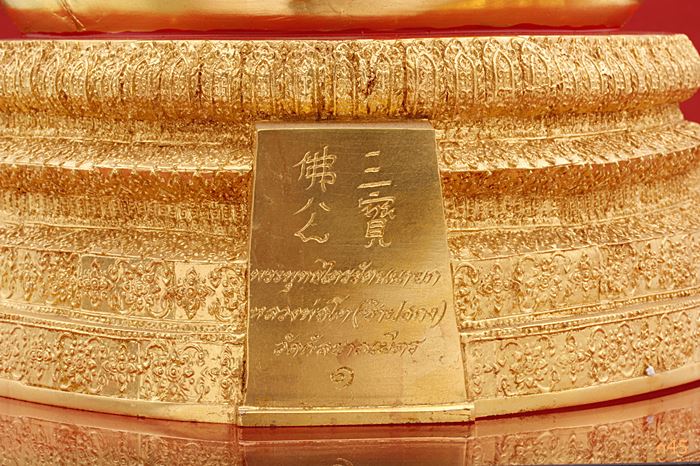 三寶
佛公
พระพุทธไตรรัตนนายก
หลวงพ่อโต (ซำปอกง)
วัดกัลยาณมิตร
๑